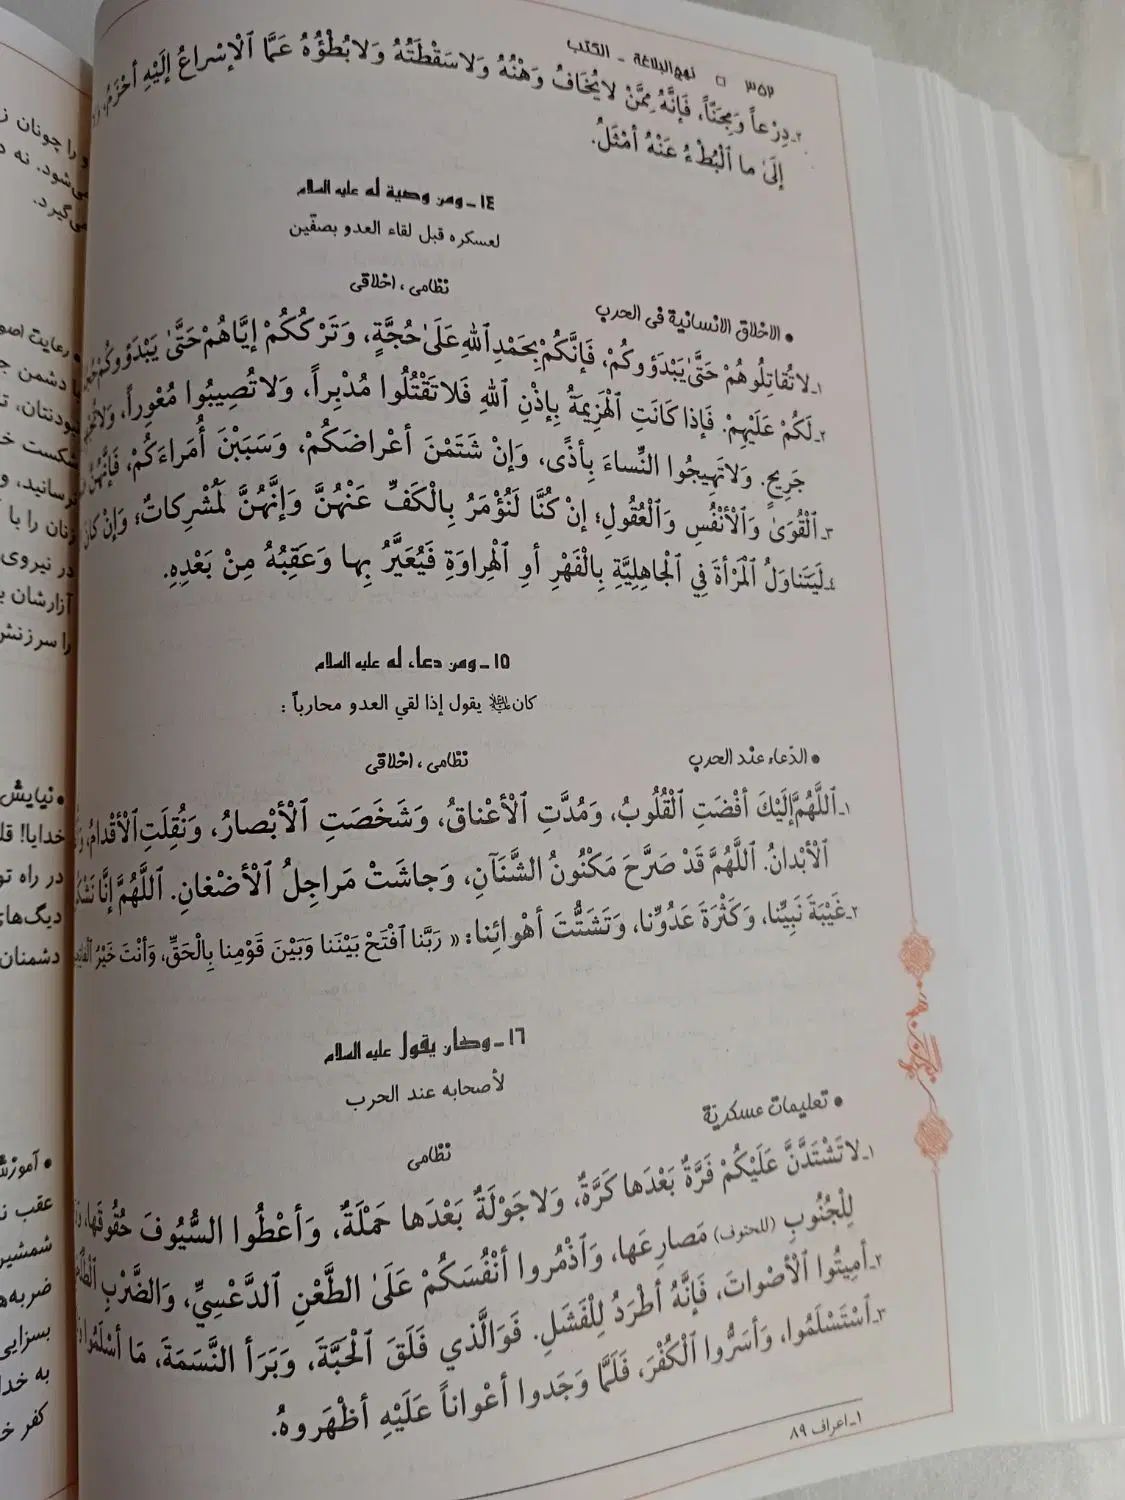 ٣٥٢ □ نهج‌البلاغة ـ الكتب
٢ـ دِرْعاً وَمِجَنّاً، فَإِنَّهُ مِمَّنْ لايُخَافُ وَهْنُهُ وَلاسَقْطَتُهُ وَلابُطْؤُهُ عَمَّا ٱلْإسْراعُ إلَيْهِ أحْزَمُ،
إلَىٰ ما ٱلْبُطْءُ عَنْهُ أمْثَلُ.
١٤ ـ ومن وصية له عليه السلام
لعسكره قبل لقاء العدو بصفّين
نظامی ، اخلاقی
• الاخلاق الانسانية فی الحرب
١ـ لاتُقاتِلُوهُمْ حَتَّىٰ يَبْدَؤوكُمْ، فَإنَّكُمْ بِحَمْدِ ٱللهِ عَلَىٰ حُجَّةٍ، وَتَرْكُكُمْ إيَّاهُمْ حَتَّىٰ يَبْدَؤُوكُمْ
٢ـ لَكُمْ عَلَيْهِمْ. فَإذا كَانَتِ ٱلْهَزِيمَةُ بِإذْنِ ٱللهِ فَلاتَقْتُلُوا مُدْبِراً، وَلاتُصِيبُوا مُعْوِراً،
جَرِيحٍ. وَلاتَهِيجُوا النِّساءَ بِأذًى، وَإنْ شَتَمْنَ أعْراضَكُمْ، وَسَبَبْنَ أُمَراءَكُمْ، فَإنَّهُنَّ
٣ـ ٱلْقُوَىٰ وَٱلْأنْفُسِ وَٱلْعُقُولِ؛ إنْ كُنَّا لَنُؤْمَرُ بِالْكَفِّ عَنْهُنَّ وَإنَّهُنَّ لَمُشْرِكاتٌ؛ وَإنْ كانَ
٤ـ لَيَتَناوَلُ ٱلْمَرْأةَ فِي ٱلْجاهِلِيَّةِ بِالْفَهْرِ أوِ ٱلْهِراوَةِ فَيُعَيَّرُ بِها وَعَقِبُهُ مِنْ بَعْدِهِ.
١٥ ـ ومن دعاء له عليه السلام
كان يقول إذا لقي العدو محارباً :
نظامی ، اخلاقی
• الدّعاء عند الحرب
١ـ ٱللَّهُمَّ إلَيْكَ أفْضَتِ ٱلْقُلُوبُ، وَمُدَّتِ ٱلْأعْناقُ، وَشَخَصَتِ ٱلْأبْصارُ، وَنُقِلَتِ ٱلْأقْدامُ،
ٱلْأبْدانُ. ٱللَّهُمَّ قَدْ صَرَّحَ مَكْنُونُ الشَّنَآنِ، وَجاشَتْ مَراجِلُ ٱلْأضْغانِ. ٱللَّهُمَّ إنَّا نَشْكُو
٢ـ غَيْبَةَ نَبِيِّنا، وَكَثْرَةَ عَدُوِّنا، وَتَشَتُّتَ أهْوائِنا: « رَبَّنا ٱفْتَحْ بَيْنَنا وَبَيْنَ قَوْمِنا بِالْحَقِّ، وَأنْتَ خَيْرُ
١٦ ـ وكان يقول عليه السلام
لأصحابه عند الحرب
نظامی
• تعليمات عسكرية
١ـ لاتَشْتَدَّنَّ عَلَيْكُمْ فَرَّةٌ بَعْدَها كَرَّةٌ، وَلاجَوْلَةٌ بَعْدَها حَمْلَةٌ، وَأعْطُوا السُّيُوفَ حُقُوقَها،
لِلْجُنُوبِ (للحتوف) مَصارِعَها، وَٱذْمُروا أنْفُسَكُمْ عَلَىٰ الطَّعْنِ ٱلدَّعْسِيِّ، وَالضَّرْبِ
٢ـ أمِيتُوا ٱلْأصْواتَ، فَإنَّهُ أطْرَدُ لِلْفَشَلِ. فَوَالَّذي فَلَقَ ٱلْحَبَّةَ، وَبَرَأ النَّسَمَةَ، مَا أسْلَمُوا
٣ـ ٱسْتَسْلَمُوا، وَأسَرُّوا ٱلْكُفْرَ، فَلَمَّا وَجَدوا أعْواناً عَلَيْهِ أظْهَروهُ.
١ـ اعراف ٨٩
را چونان
می‌شود. نه
می‌گیرد.
• رعایت
دشمن
شکست
زنان را با
در نیروی
آزارشان
را سرزنش
• نیایش
خدایا!
در راه
دیگ‌های
دشمنان
عقب
بسزایی
به
کفر